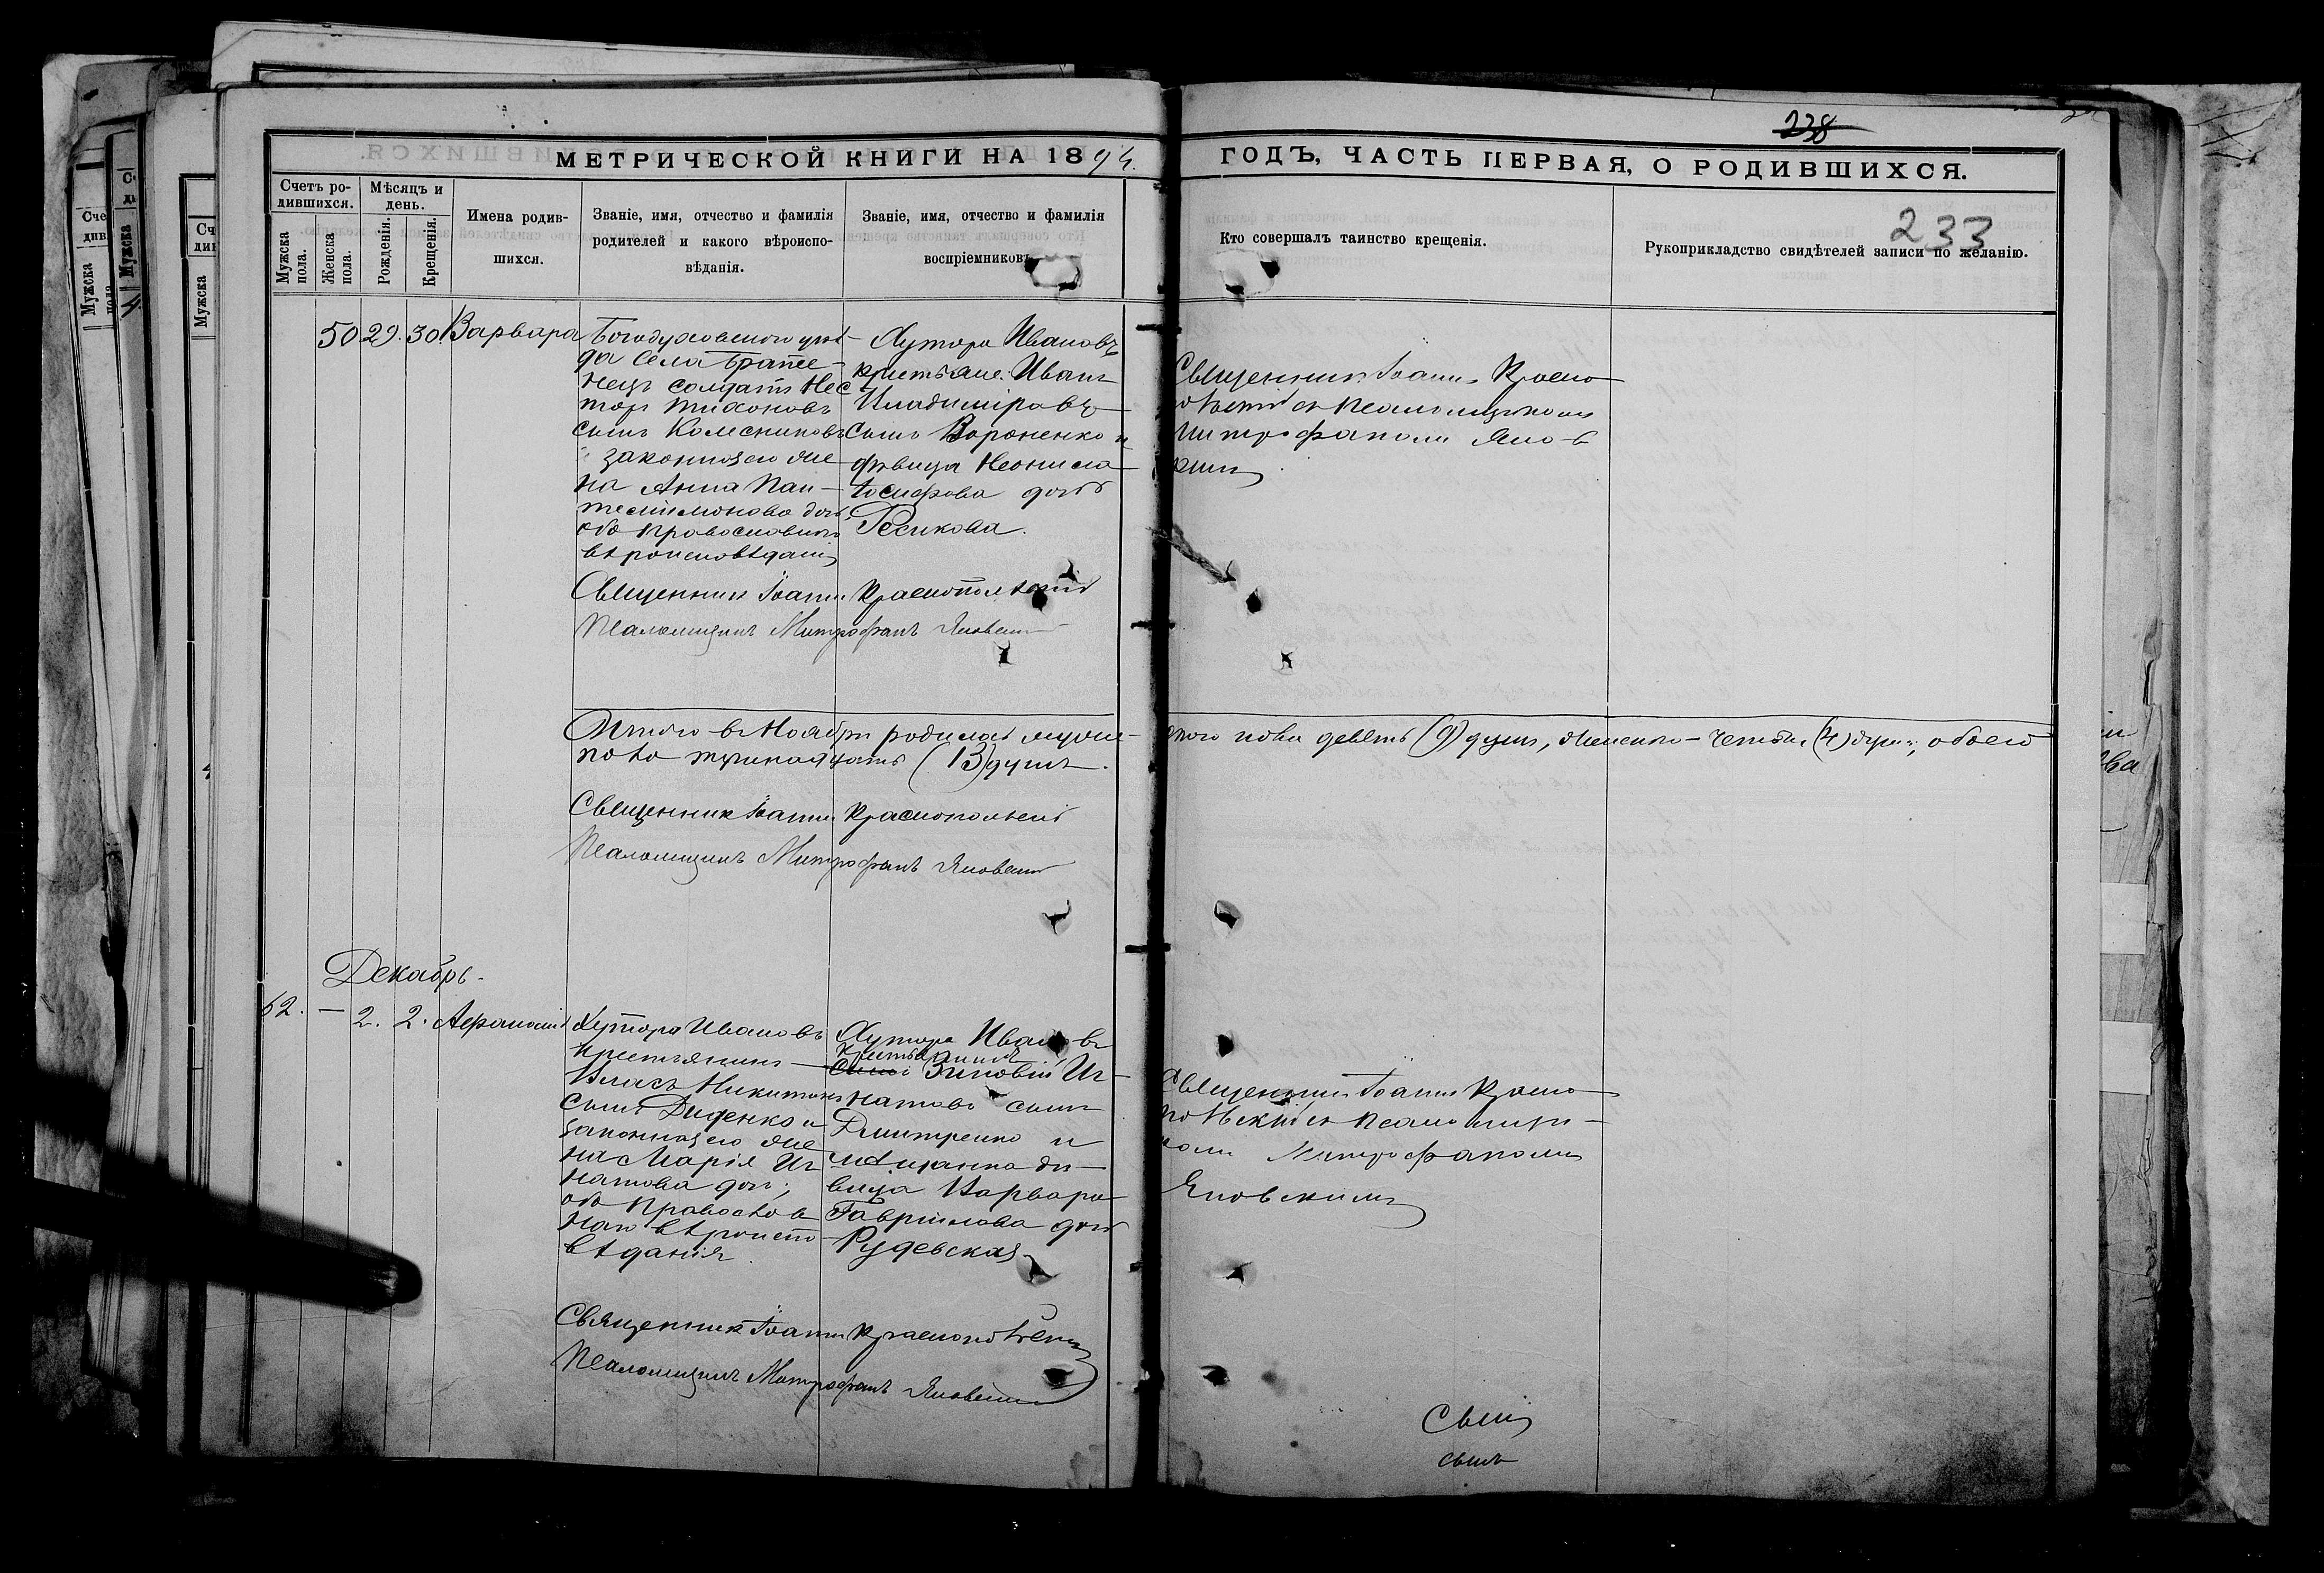 238
МЕТРИЧЕСКОЙ КНИГИ НА 1894.
ГОДЪ, ЧАСТЬ ПЕРВАЯ, О РОДИВШИХСЯ.
233
Счетъ ро-
дившихся.
Мужска
пола.
Женска
пола.
Мѣсяцъ и
день.
Рожденія.
Крещенія.
Имена родив-
шихся.
Званіе, имя, отчество и фамилія
родителей и какого вѣроиспо-
вѣданія.
Званіе, имя, отчество и фамилія
воспріемниковъ.
Кто совершалъ таинство крещенія.
Рукоприкладство свидѣтелей записи по желанію.
50 29. 30. Варвара
Богодуховскаго уѣз-
да села
солдатъ Нес
торъ Тихоновъ
сынъ Колесниковъ
и законная его же
на Анна Пан-
телеимонова доч.
оба православнаго
вѣроисповѣданія
Хутора Ивановъ
крестьяне. Иванъ
Владиміровъ
сынъ Вороненко и
дѣвица
Іосифова дочь
Священникъ Іоаннъ Красно
съ псаломщикомъ
Митрофаномъ Яно-в
скимъ
Священникъ Іоаннъ Краснопольскій
Псаломщикъ Митрофанъ Яновскій
Итого въ Ноябрѣ родилось мужес-
каго пола девять (9) душъ, женска - четыре (4) души; обоего
пола тринадцать (13) душъ.
Священникъ Іоаннъ Краснопольскій
Псаломщикъ Митрофанъ Яновскій
Декабрь.
62. — 2. 2. Афанасій
Хутора Ивановъ
крестьянинъ
Власъ Никитинъ
сынъ Диденко и
законная его же
на Марія Иг
натова доч;
оба православ
наго вѣроиспо
вѣданія.
Хутора Ивановъ
крестьянинъ
Зиновій Иг-
натовъ сынъ
Дмитренко и
мѣщанка дѣ-
вица Варвара
Гавріилова дочь
Рудевская
Священникъ Іоаннъ Красно
польскій съ псаломщи-
комъ Митрофаномъ
Яновскимъ
Священникъ Іоаннъ Краснопольскій
Псаломщикъ Митрофанъ Яновскій